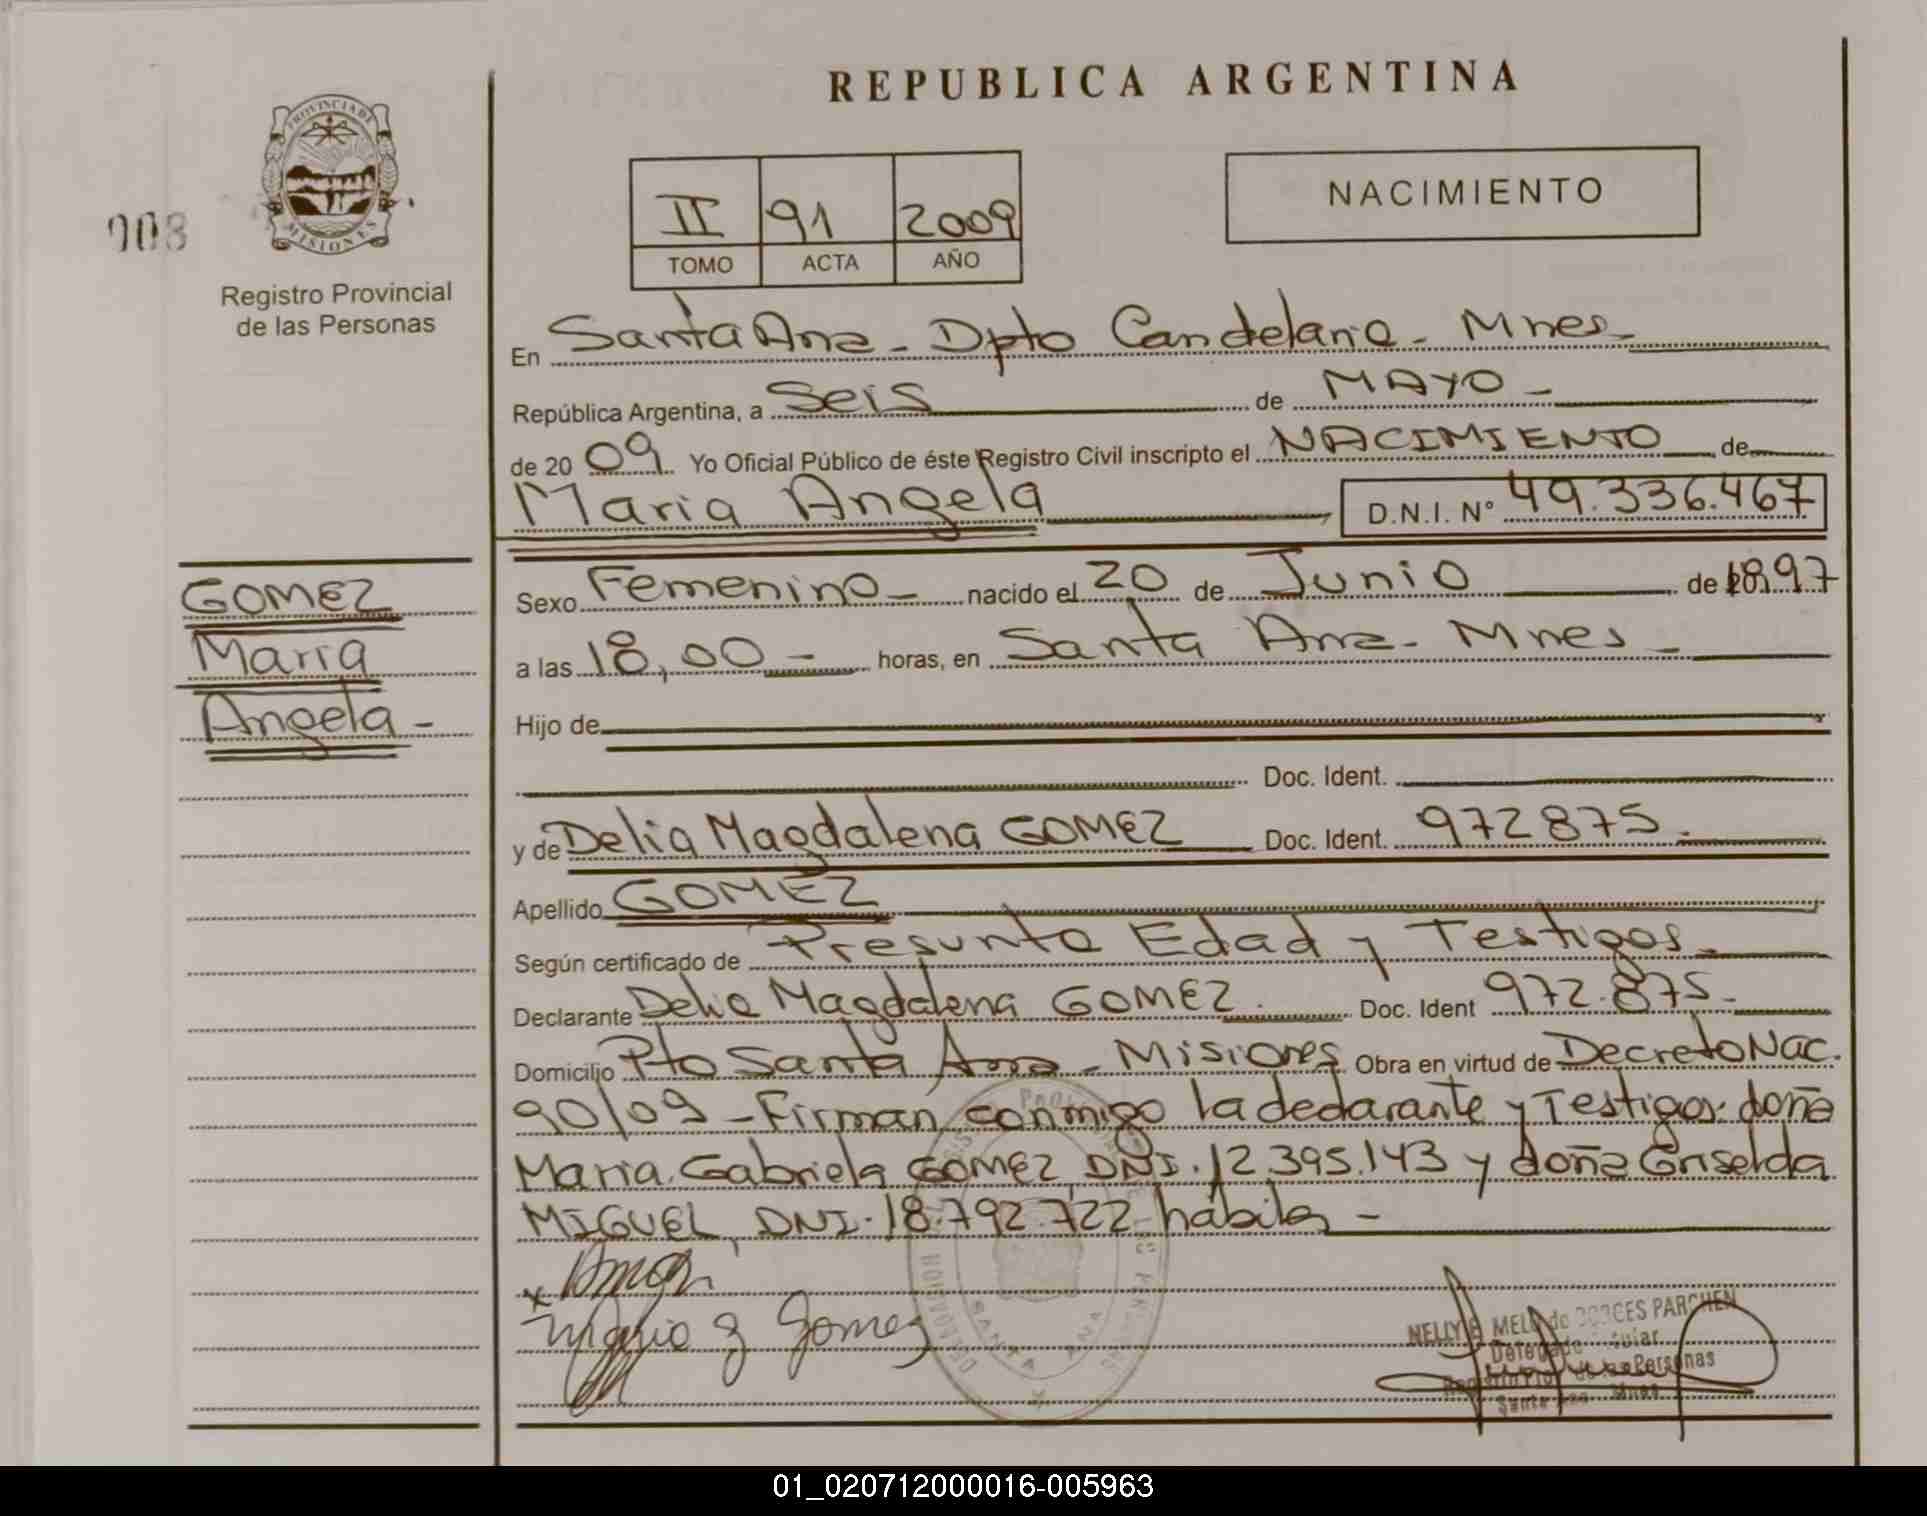 REPUBLICA ARGENTINA
PROVINCIA DE MISIONES
008
Registro Provincial
de las Personas
II 91 2009
TOMO ACTA AÑO
NACIMIENTO
En Santa Ana - Dpto Candelaria - Mnes
República Argentina, a Seis de MAYO -
de 2009 Yo Oficial Público de éste Registro Civil inscripto el NACIMIENTO de
Maria Angela D.N.I. Nº 49.336.467
GOMEZ
Maria
Angela -
Sexo Femenino - nacido el 20 de Junio de 1997
a las 18,00 - horas, en Santa Ana - Mnes -
Hijo de
Doc. Ident.
y de Delia Magdalena GOMEZ Doc. Ident. 972875.
Apellido GOMEZ
Según certificado de Presunta Edad y Testigos -
Declarante Delia Magdalena GOMEZ. Doc. Ident 972.875.
Domicilio Pto Santa Ana - Misiones Obra en virtud de Decreto Nac.
90/09 - Firman conmigo la declarante y Testigos doña
Maria Gabriela GOMEZ, DNI. 12.395.143 y doña Griselda
MIGUEL, DNI. 18.792.722 habiles -
x
Maria G Gomez
SANTA ANA
NELLY MELO de BORGES PARCHEN
Delegada Titular
Registro Prov. de las Personas
Santa Ana Mnes
01_020712000016-005963